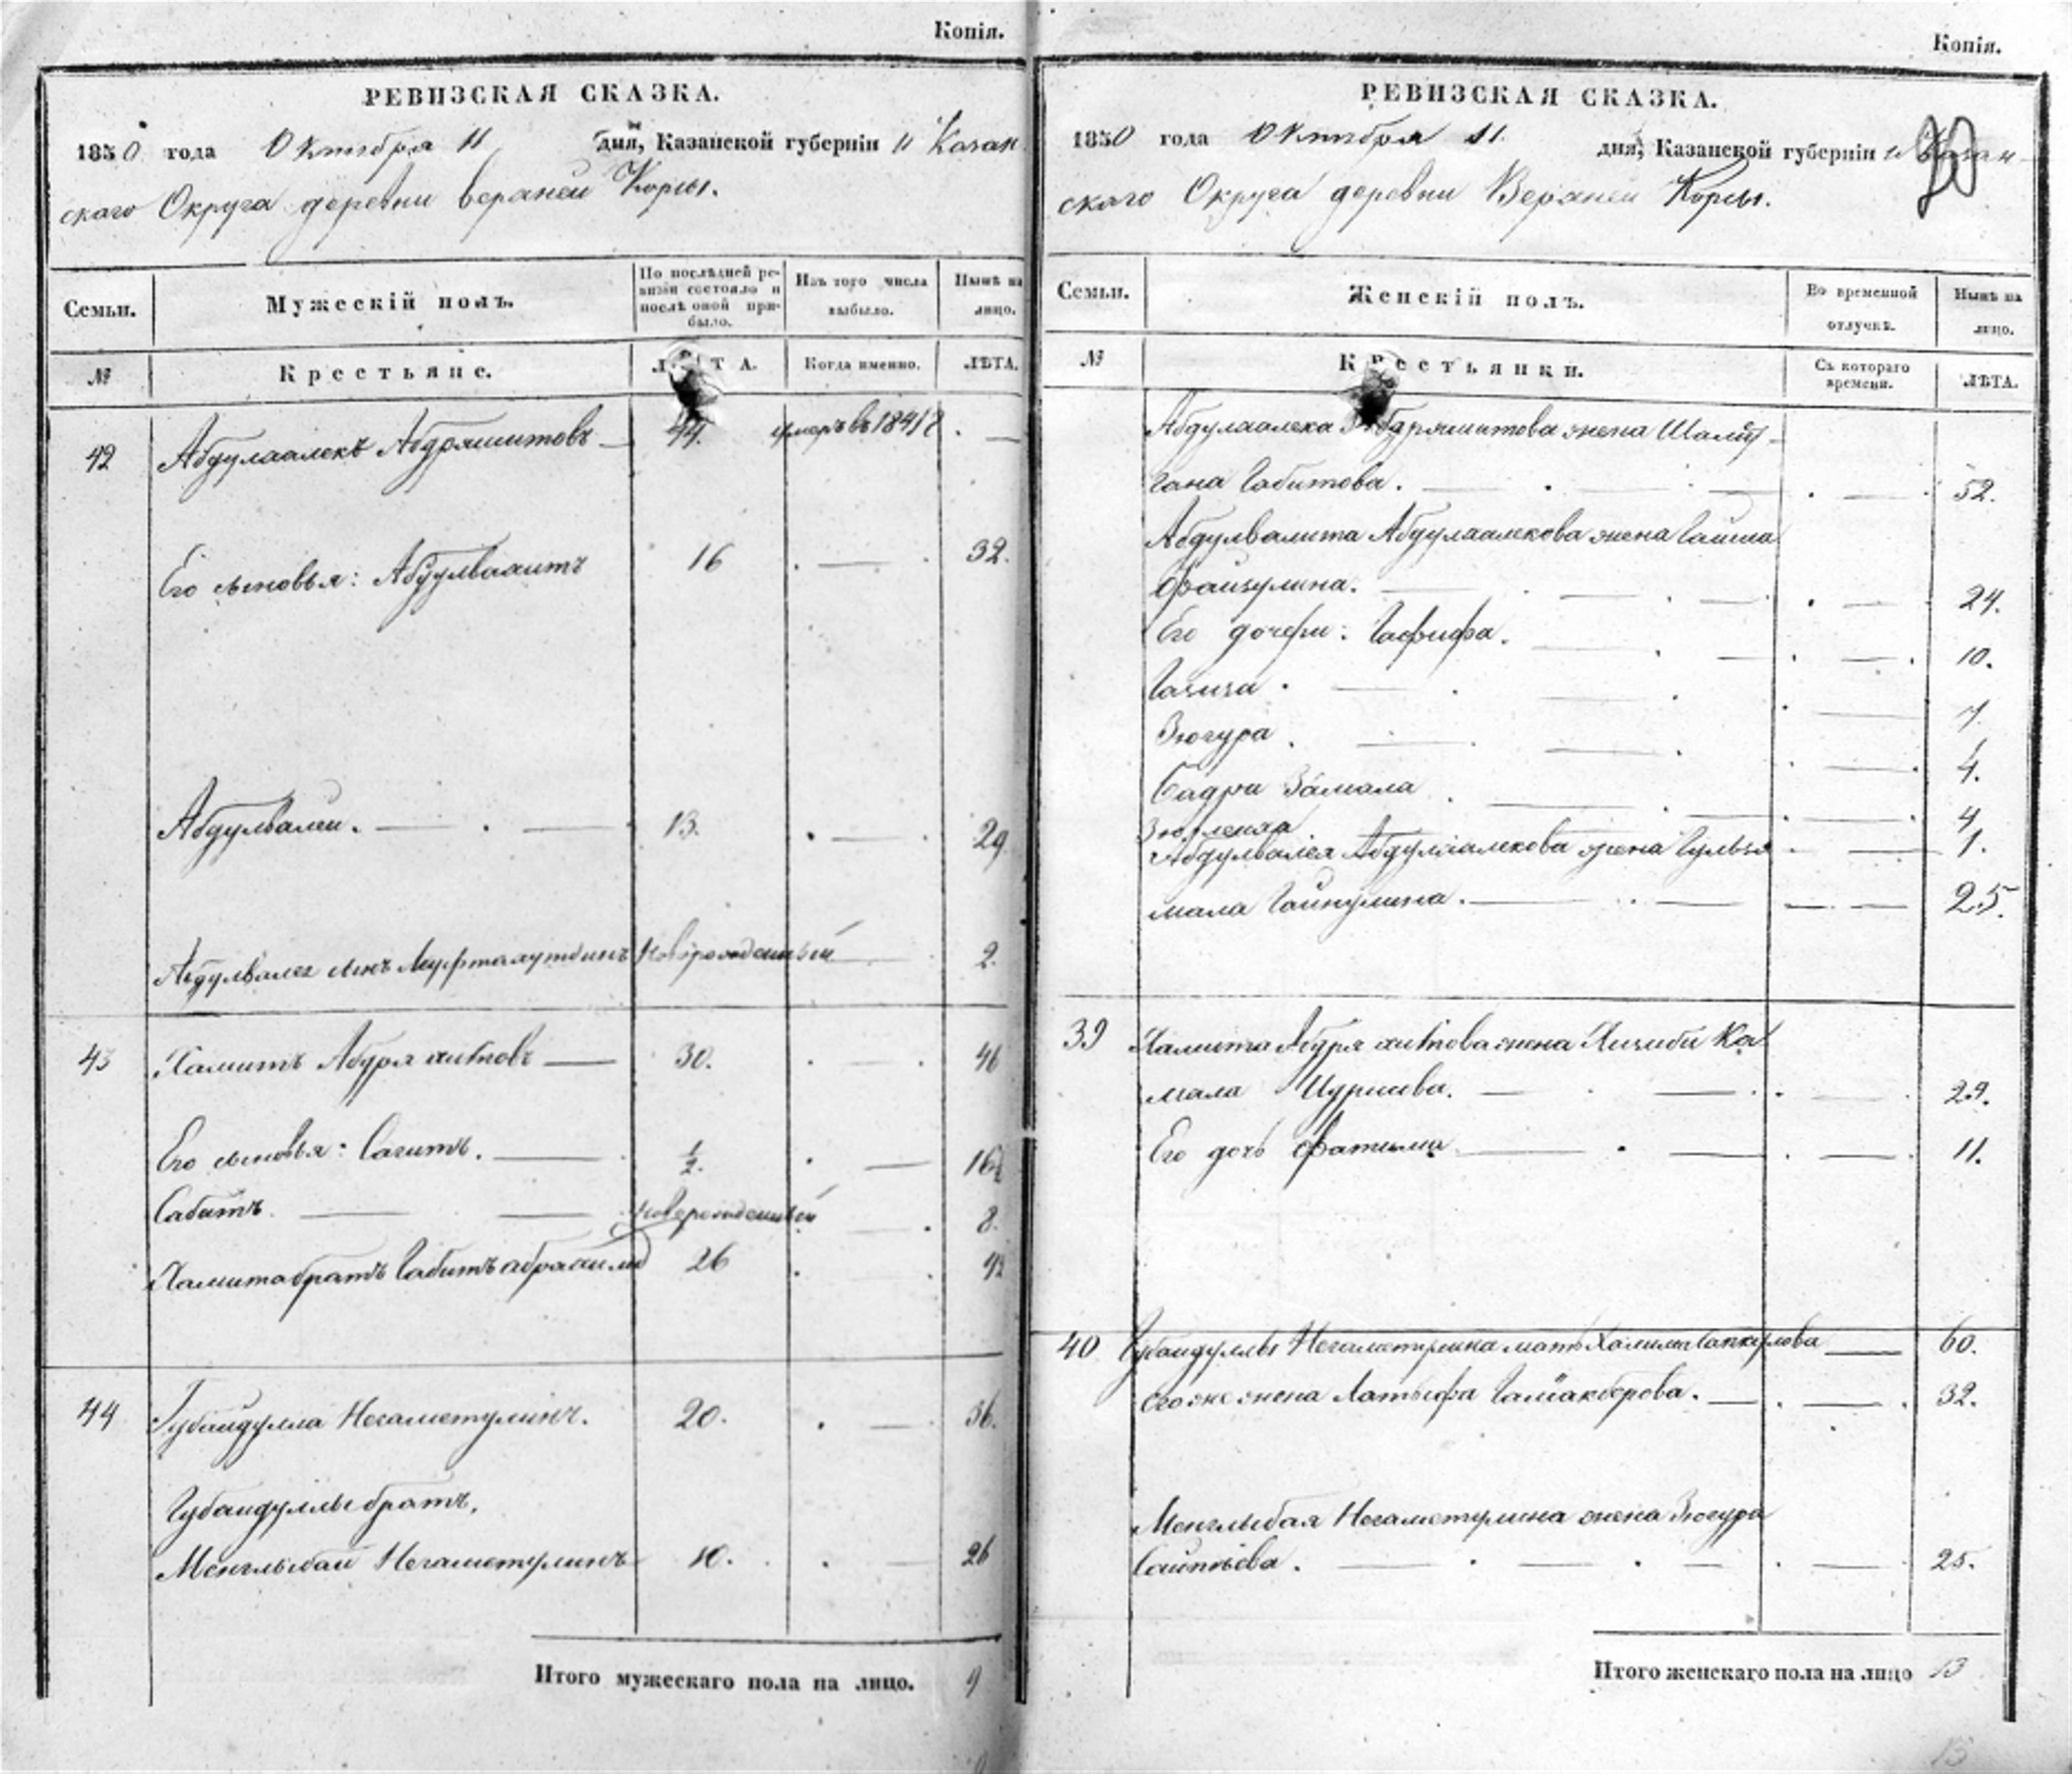 Копія.
РЕВИЗСКАЯ СКАЗКА.
1850 года Октября 11 дня, Казанской губерніи и Казан
скаго Округа деревни верхней Корсы.
Семьи.
Мужескій полъ.
По послѣдней ре-
визіи состояло и
послѣ оной при-
было.
Изъ того числа
выбыло.
Нынѣ на
лицо.
№
Крестьяне.
ЛѢТА.
Когда именно.
ЛѢТА.
42 Абдулхалекъ Абдряшитовъ 44. умеръ въ 1841
Его сыновья: Абдулвахитъ 16 32.
Абдулвали. 13. 29
Абдулвалея сынъ Муфтахутдинъ новорожденный 2.
43 Хамитъ Абдряшитовъ 30. 46
Его сыновья: Сагитъ. 1/2. 16 1/2
Сабитъ новорожденный 8.
Хамита братъ Габитъ 26 42
44 Губайдулла Негаметулинъ. 20. 36.
Губайдуллы братъ,
Менглыбай Негаметулинъ 10. 26
Итого мужескаго пола на лицо. 9
Копія.
РЕВИЗСКАЯ СКАЗКА.
1850 года Октября 11. дня, Казанской губерніи и Казан-
скаго Округа деревни Верхней Корсы.
Семьи.
Женскій полъ.
Во временной
отлучкѣ.
Нынѣ на
лицо.
№
Крестьянки.
Съ котораго
времени.
ЛѢТА.
Абдулхалека Абдряшитова жена Шамсу-
гана Габитова. 52.
Абдулвахита Абдулхалекова жена Гайша
Файзулина. 24.
Его дочери: Гафифа. 10.
Газиза. 7.
Зюгура. 4.
Бадри Замала 4
Зюлейха 1.
Абдулвалея Абдулхалекова жена Гульза
мала Гайнулина. 25.
39 Хамита Абдряшитова жена Ка
мала 29.
Его дочь Фатыма 11.
40 Губайдуллы Негаметулина мать Халима 60.
его же жена Латыфа Галиакберова. 32.
Менглыбая Негаметулина жена Зюгура
Сайтова. 25.
Итого женскаго пола на лицо 13